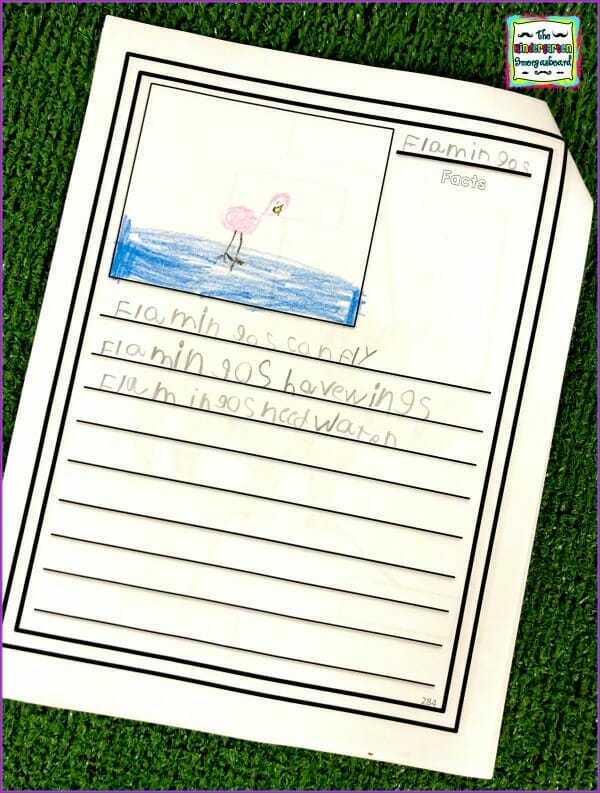 The
Kindergarten
Smorgasboard
Flamingos
Facts
Flamingos can Fly
Flamingos have wings
Flamingos need water
284